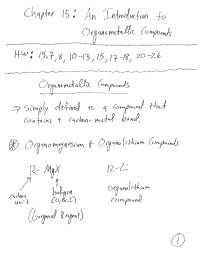 Chapter 15: An Introduction to
Organometallic Compounds
HW: 15.7, 8, 10-13, 15, 17-18, 20-26
Organometallic Compounds
→ Simply defined as a compound that
contains a carbon-metal bond.
Organomagnesium & Organolithium Compounds
R-MgX R-Li
carbon unit
halogen (Cl, Br, I)
organolithium compound
(Grignard Reagent)
1